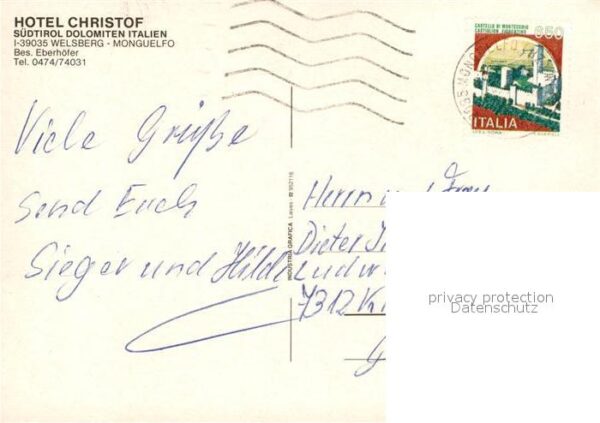 HOTEL CHRISTOF
SÜDTIROL DOLOMITEN ITALIEN
I-39035 WELSBERG - MONGUELFO
Bes. Eberhöfer
Tel. 0474/74031
Viele Grüße
send Euch
Sieger und Hilde
INDUSTRIA GRAFICA Laives ☎ 952116
CASTELLO DI MONTECCHIO
CASTIGLION FIORENTINO
650
ITALIA
Herrn
Dieter
Ludw
7312 K
privacy protection
Datenschutz